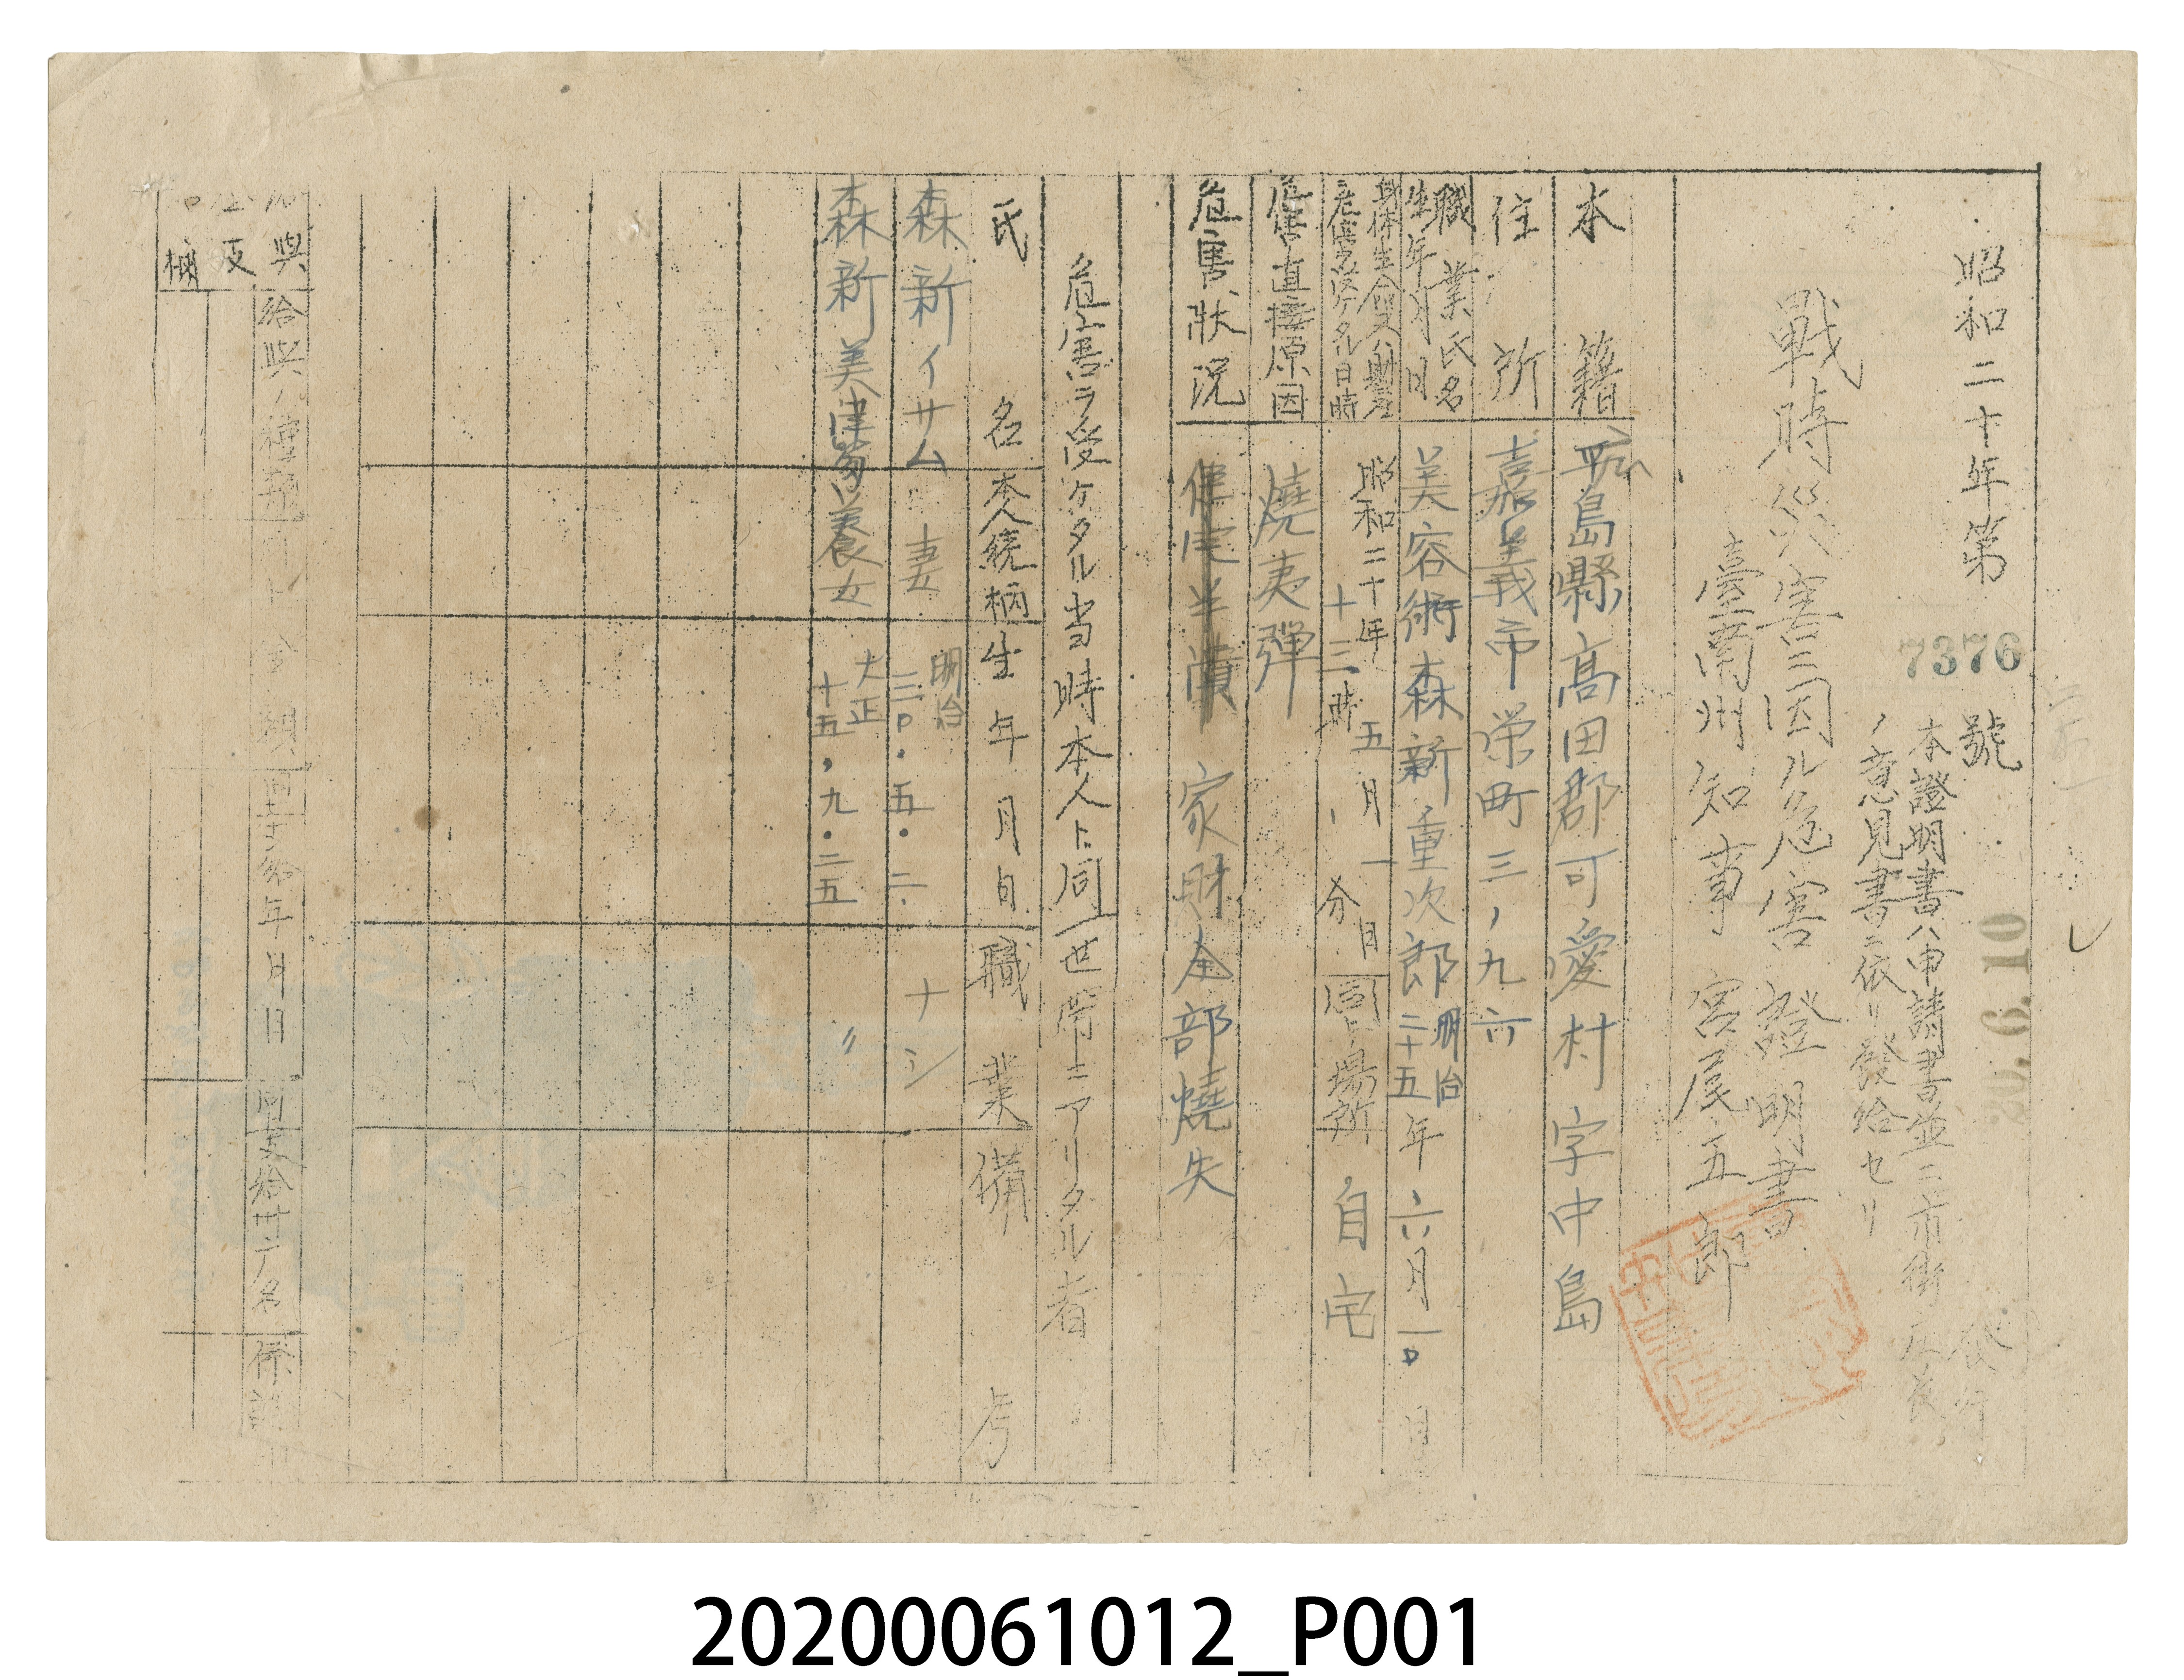 昭和二十年第 7376 號
20.6.10
本證明書ハ申請書並ニ市街庄長
ノ意見書ニ依リ發給セリ
戰時災害ニ因ル危害證明書
臺南州知事 宮尾五郎
本籍 広島縣高田郡可愛村字中島
住所 嘉義市栄町三、九六
職業氏名
生年月日 美容術 森新重次郎 明治二十五年六月一〇日
危害ヲ受ケタル日時 昭和二十年五月一日
十三時 分 同上場所 自宅
危害直接原因 燒夷彈
危害狀況 住宅半潰 家財全部燒失
危害ヲ受ケタル当時本人ト同一世帯ニアリタル者
氏名 本人続柄 生年月日 職業 備考
森新イサム 妻 明治三〇.五.二 ナシ
森新美津 養女 大正十五,九.二五 〃
給與ノ種類 金額 年月日 係
20200061012_P001